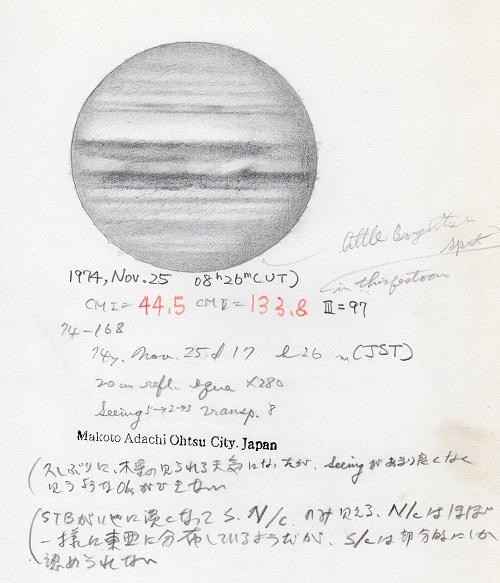 little brighter
spot
in this festoon
1974, Nov. 25 08ʰ26ᵐ(UT)
CM I = 44.5 CM II = 133.8 III = 97
74-168
74y. Nov. 25d 17 h 26 m (JST)
20cm refl. equa X280
Seeing 5→2→3 transp. 8
Makoto Adachi Ohtsu City. Japan
久しぶりに、木星の見られる天気になったが、Seeingがあまり良くなく
ができない
STBがいやに淡くなって S. N/c. のみ見える、N/cはほぼ
一様に東西に分布しているようだが、S/cは部分的にしか
認められない